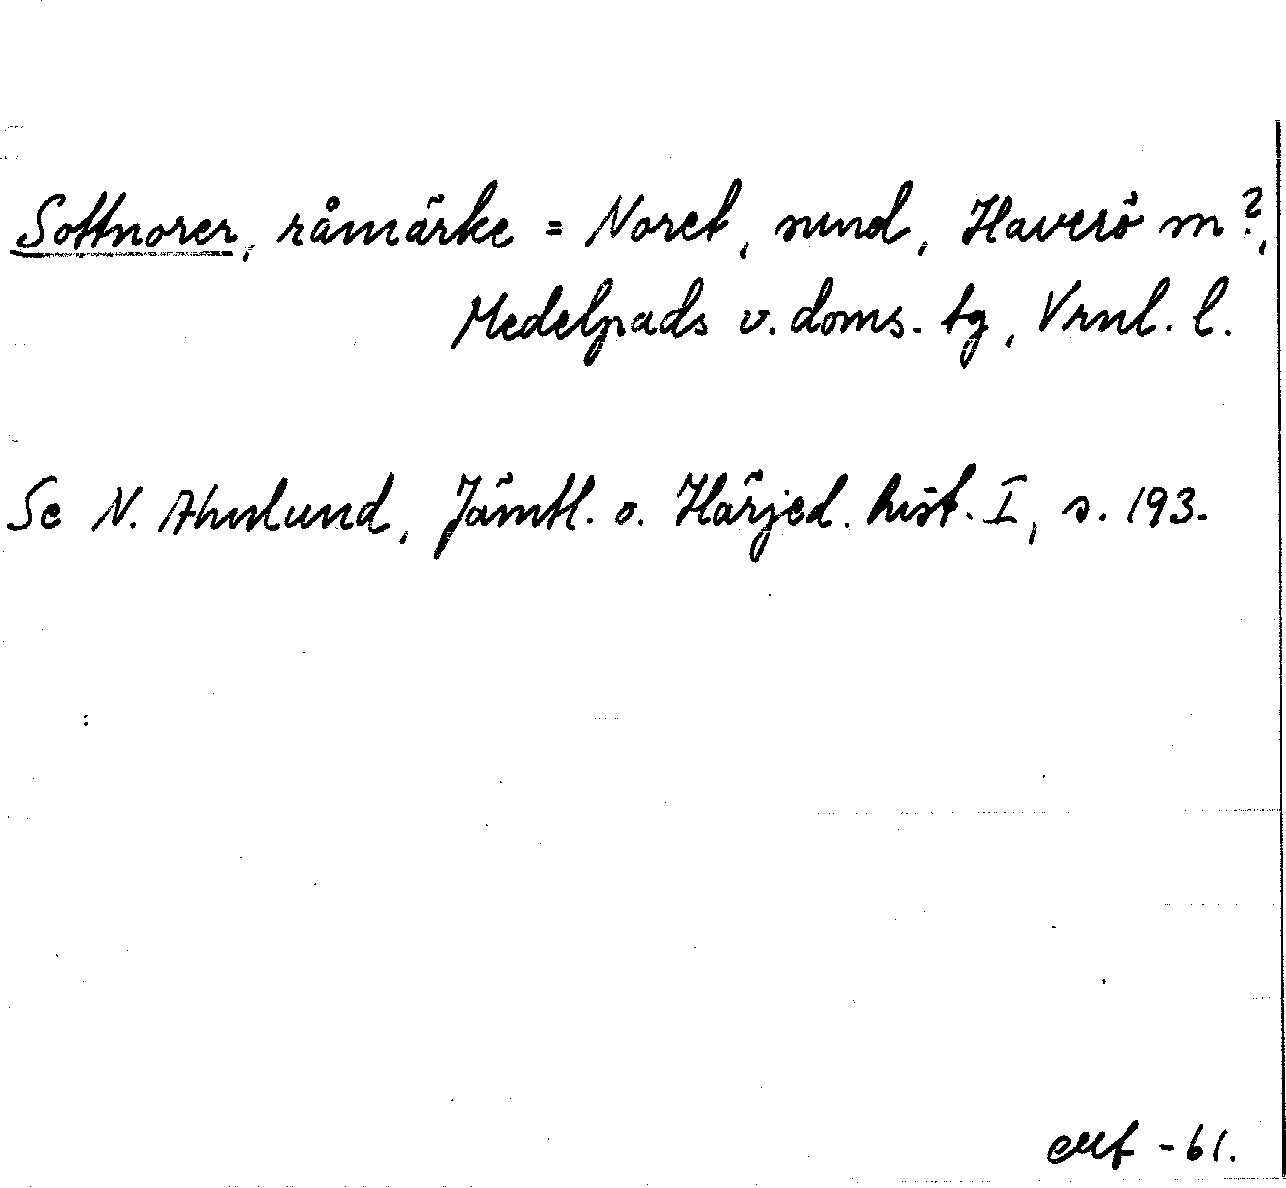 Sottnorer, råmärke = Noret, sund, Haverö sn?,
Medelpads v. doms. tg, Vrnl. l.
Se N. Ahnlund, Jämtl. o. Härjed. hist. I, s. 193.
-61.